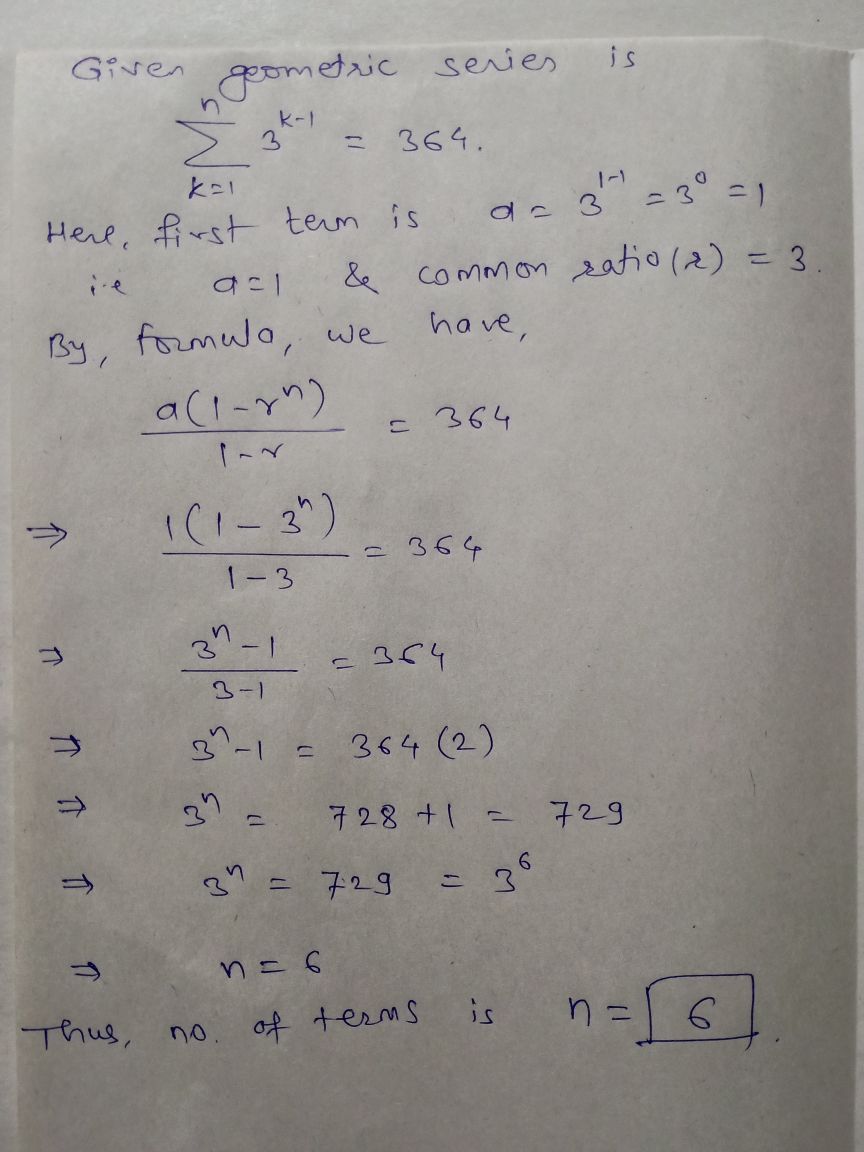 Given geometric series is
n
∑ 3^{k-1} = 364.
k=1
Here, first term is a = 3^{1-1} = 3^0 = 1
i.e a=1 & common ratio(r) = 3.
By, formula, we have,
a(1-r^n)/(1-r) = 364
⇒ 1(1-3^n)/(1-3) = 364
⇒ (3^n-1)/(3-1) = 364
⇒ 3^n-1 = 364(2)
⇒ 3^n = 728+1 = 729
⇒ 3^n = 729 = 3^6
⇒ n=6
Thus, no. of terms is n = 6.